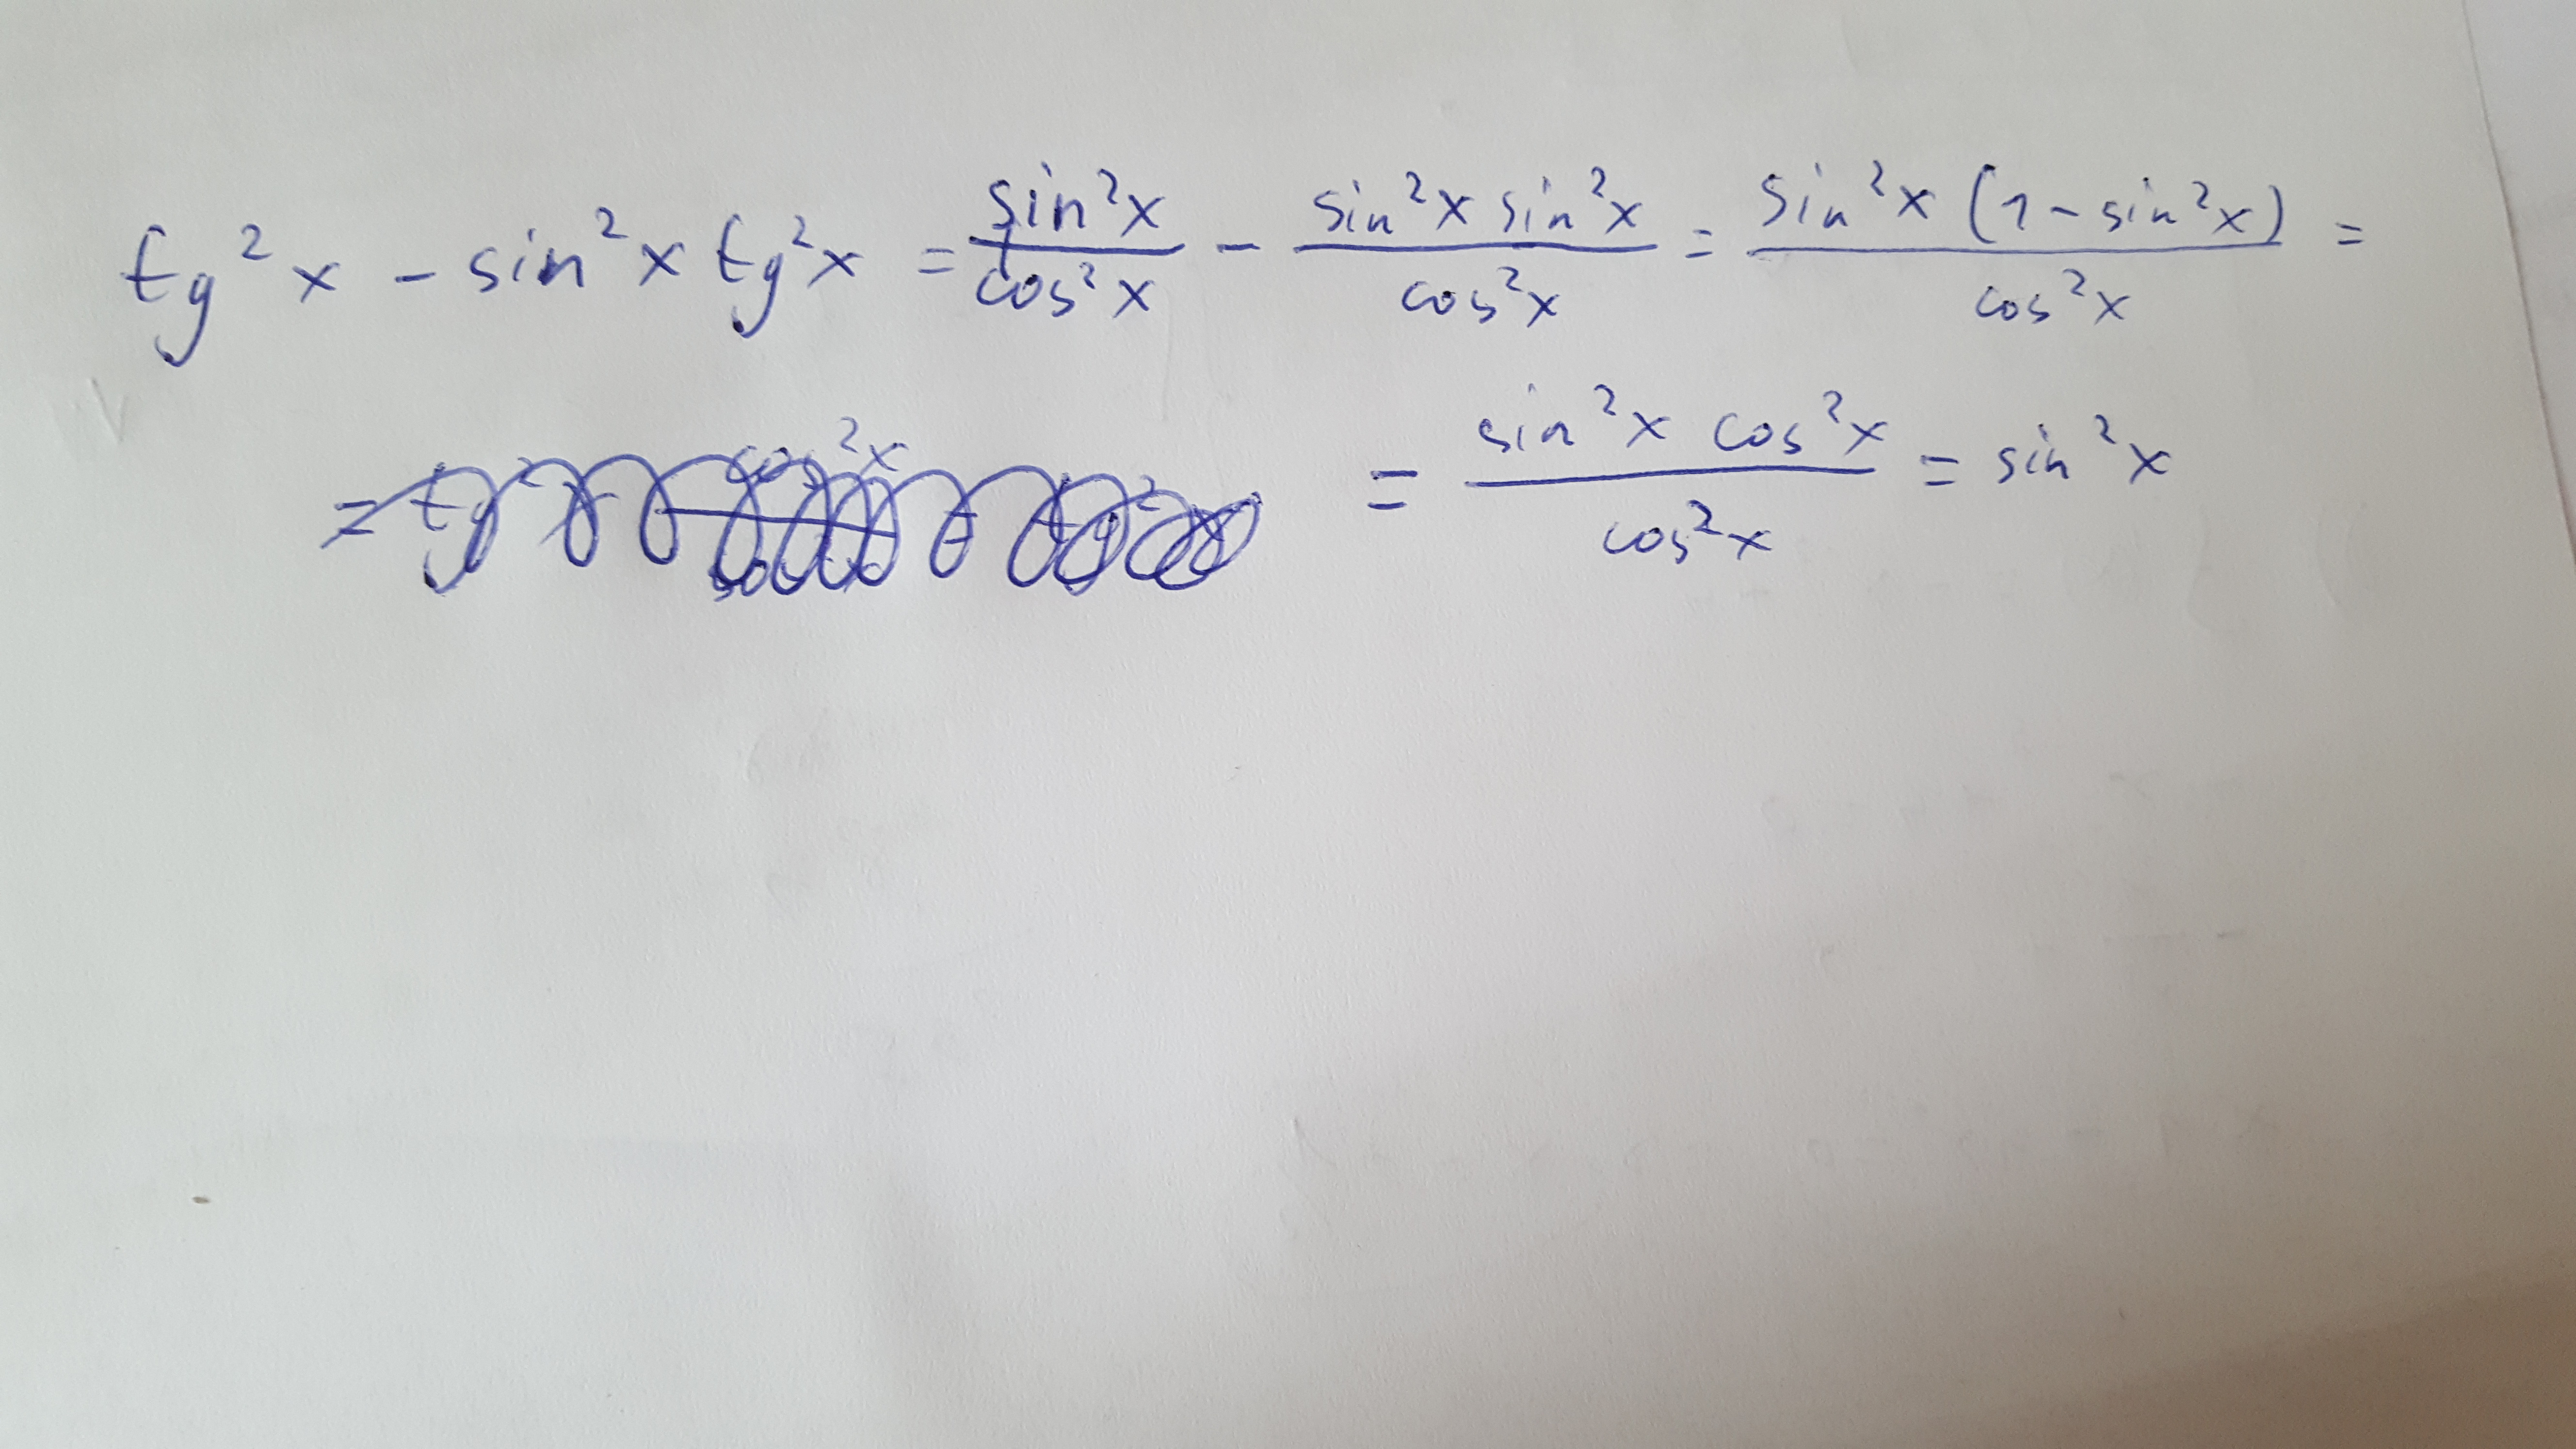 tg²x - sin²x tg²x = sin²x/cos²x - sin²x sin²x/cos²x = sin²x (1 - sin²x)/cos²x =
= sin²x cos²x/cos²x = sin²x